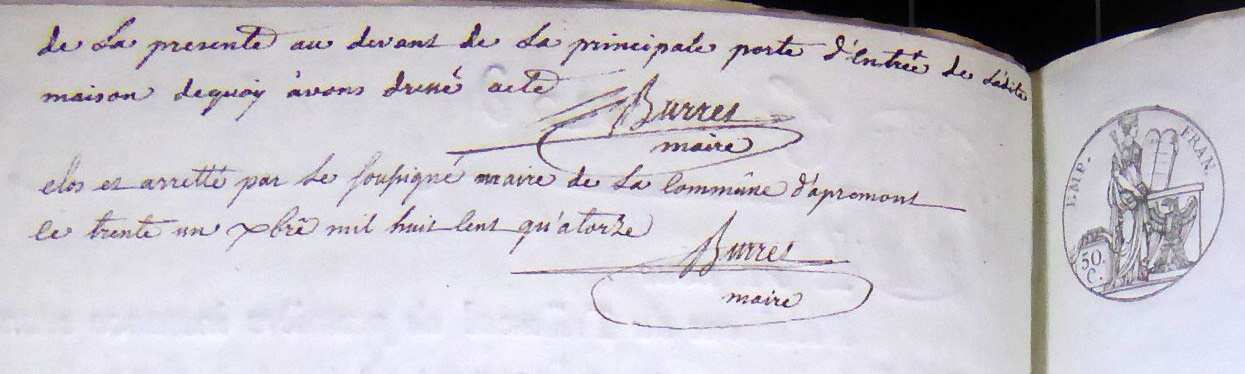 de la presente au devant de la principale porte d'Entrée de ladite
maison dequoy avons dressé acte
Burret
maire
clos et arretté par le soussigné maire de la Commune d'apremont
le trente un xbre mil huit Cent quatorze
Burret
maire
EMP. FRAN.
50.
C.